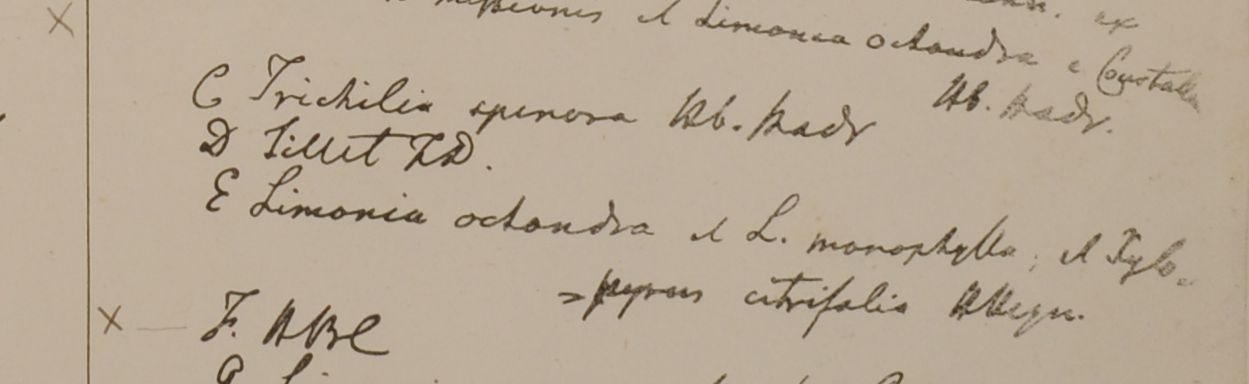 missionis et Limonia octandra e Coustalla
Hb. Madr.
C Trichilia spinosa Hb. Madr
D Tillet ZD.
E Limonia octandra et L. monophylla, et Xylo-
citrifolia HHeyn.
F. HBC